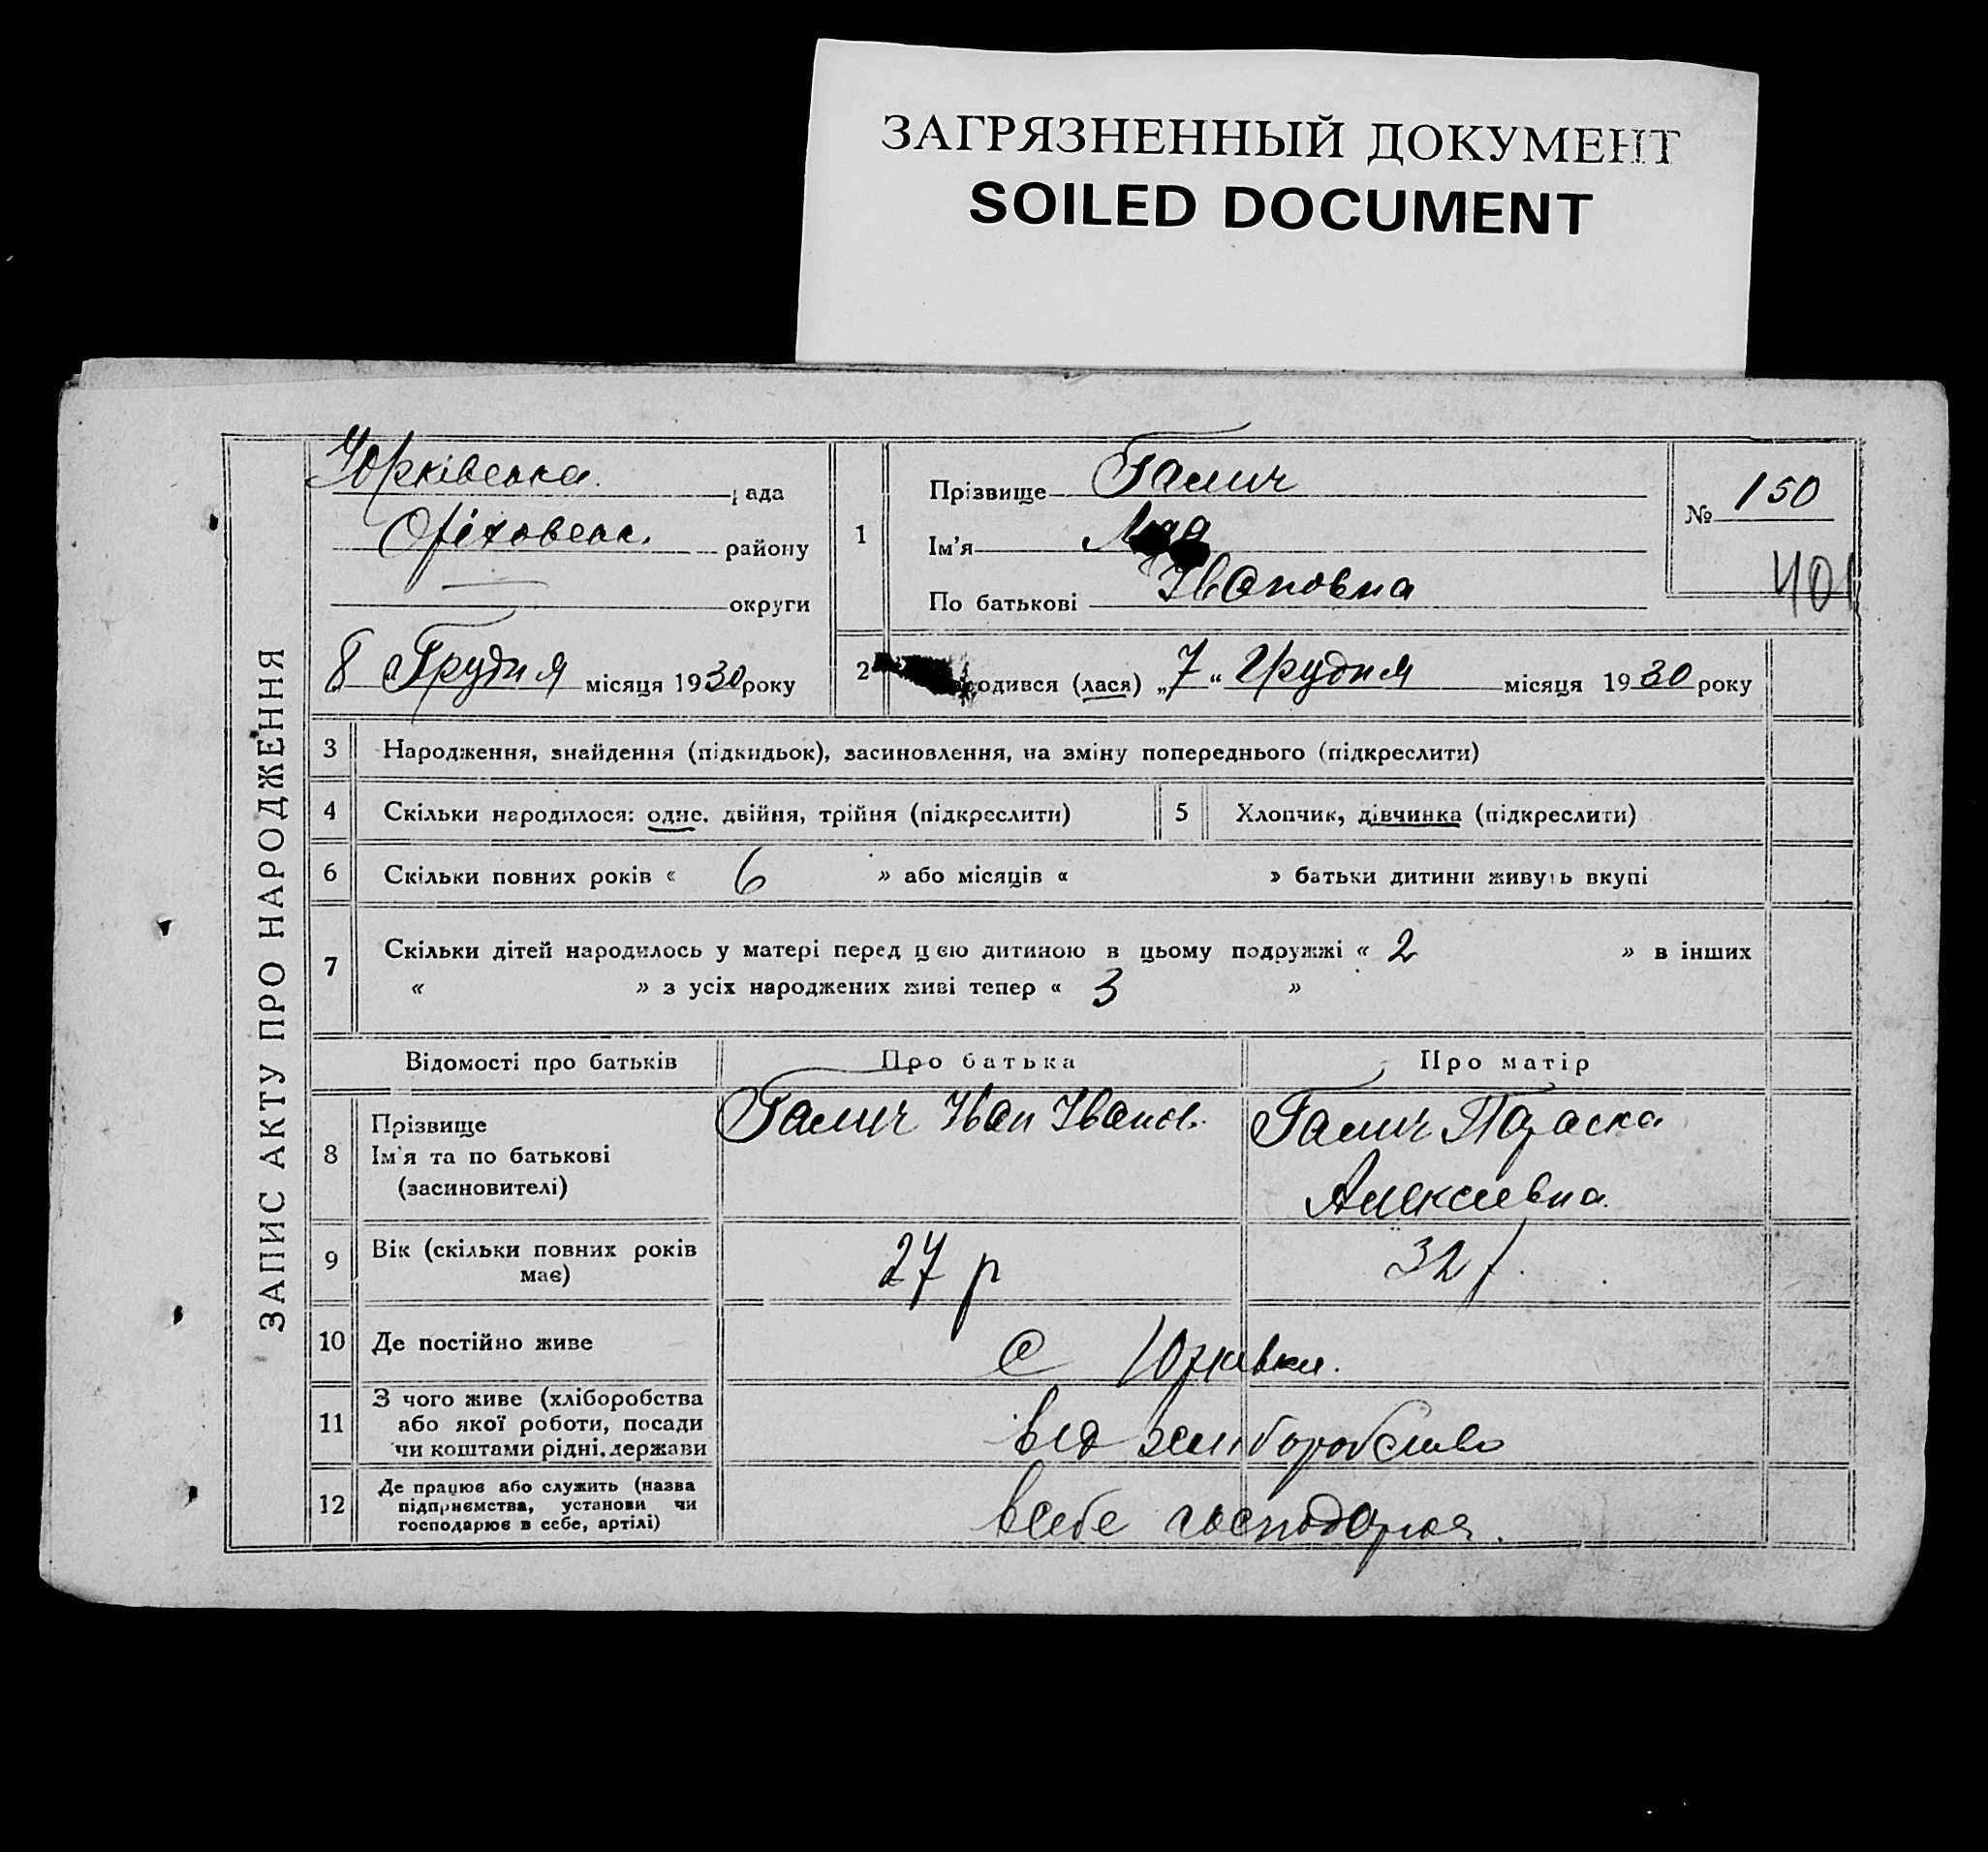 ЗАГРЯЗНЕННЫЙ ДОКУМЕНТ
SOILED DOCUMENT
ЗАПИС АКТУ ПРО НАРОДЖЕННЯ
Юрківська рада
Оріховськ. району
округи
8 Грудня місяця 1930 року
1
Прізвище Галич
Ім'я
По батькові Івановна
№ 150
401
2 одився (лася) „7“ Грудня місяця 1930 року
3 Народження, знайдення (підкидьок), засиновлення, на зміну попереднього (підкреслити)
4 Скільки народилося: одне. двійня, трійня (підкреслити) 5 Хлопчик, дівчинка (підкреслити)
6 Скільки повних років « 6 » або місяців « » батьки дитини живуть вкупі
7 Скільки дітей народилось у матері перед цією дитиною в цьому подружжі « 2 » в інших
« » з усіх народжених живі тепер « 3 »
Відомості про батьків Про батька Про матір
8 Прізвище
Ім'я та по батькові
(засиновителі)
Галич Іван Іванов.
Галич Параска
Алексиевна
9 Вік (скільки повних років
має)
27 р
32 р.
10 Де постійно живе
с Юрківки.
11 З чого живе (хліборобства
або якої роботи, посади
чи коштами рідні. держави
від хліборобства
12 Де працює або служить (назва
підприємства, установи чи
господарює в себе, артілі)
всебе господарює.